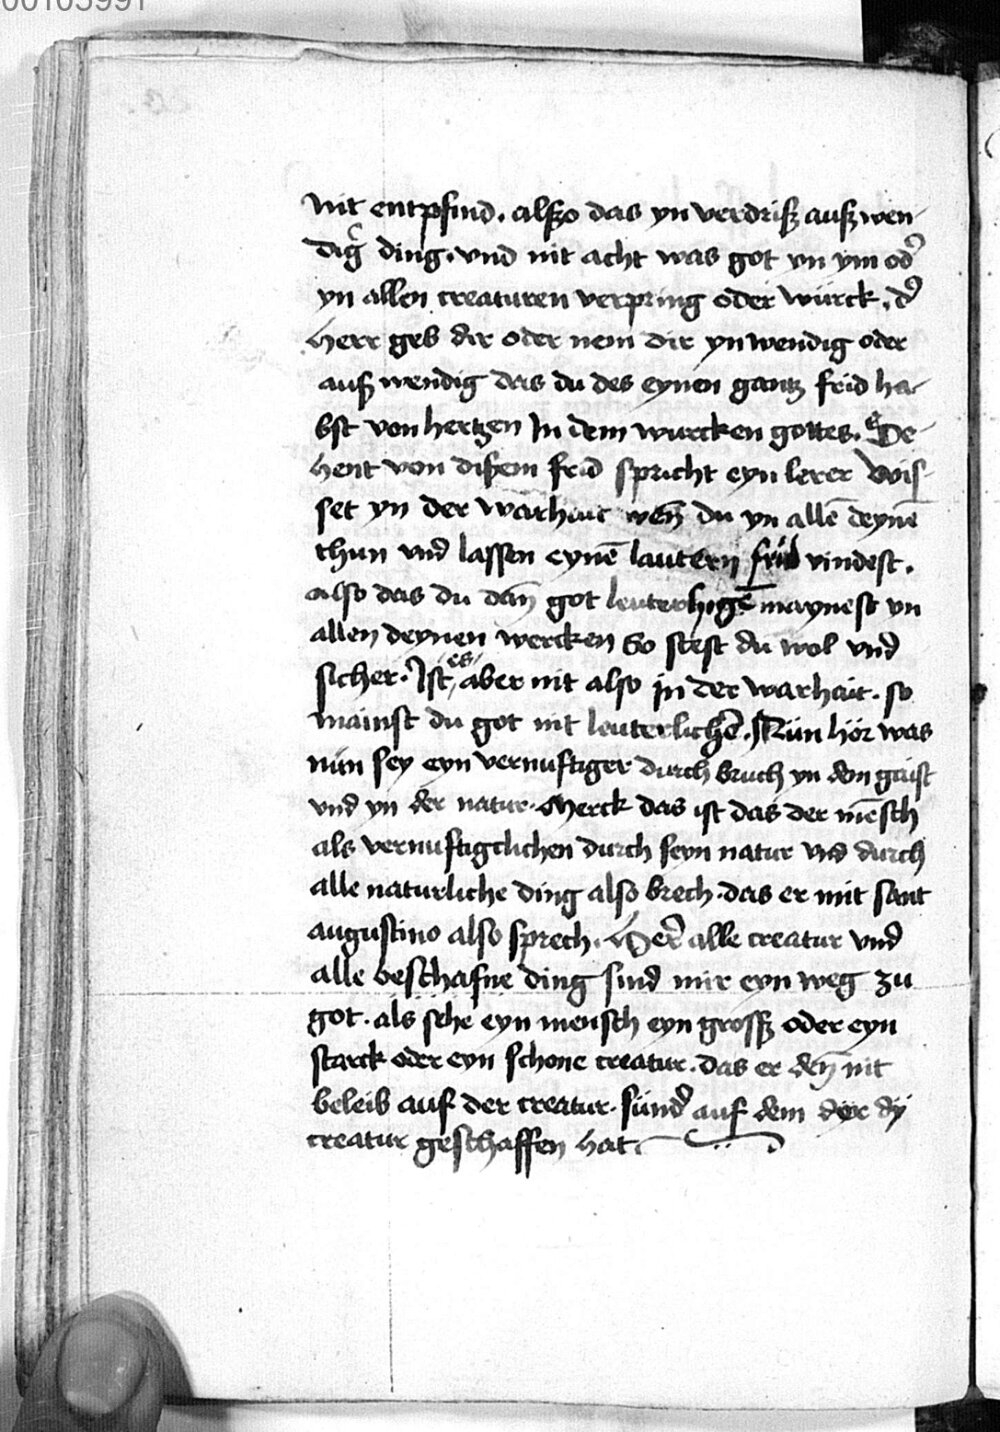 00103991
nit entpfind. alßo das yn verdriß außwen-
dig͛ ding. vnd nit acht was got yn ym od͛
yn allen creaturen verpring oder würck. d͛
herr geb dir oder nem dir ynwendig oder
auß wendig das du des eynen gantz frid ha-
bst von hertzen In dem wurcken gottes. De-
hent von dißem frid spricht eyn lerer Wis-
set yn der warhait wen̄ du yn allē deynē
thun vnd lassen eynē lautern frid vindest.
also das du dan̄ got leuterhigē maynest yn
allen deynen wercken So stest du wol vnd
sicher. Ist es aber nit also in der warhait. so
mainst du got nit leuterlichē. Nün hör was
nün sey eyn vernuftiger durch bruch yn den gaist
vnd yn der natur. Merck das ist das der mēsch
als vernuftigclichen durch seyn natur vnd durch
alle naturliche ding also brech. das er mit sant
augustino also sprech. Her͛ alle creatur vnd
alle beschafne ding sind mir eyn weg zu
got. als sehe eyn mensch eyn grosß oder eyn
starck oder eyn schone creatur. das er den̄ nit
beleib auf der creatur. sünd͛ auf dem der dÿ
creatur geschaffen hat.